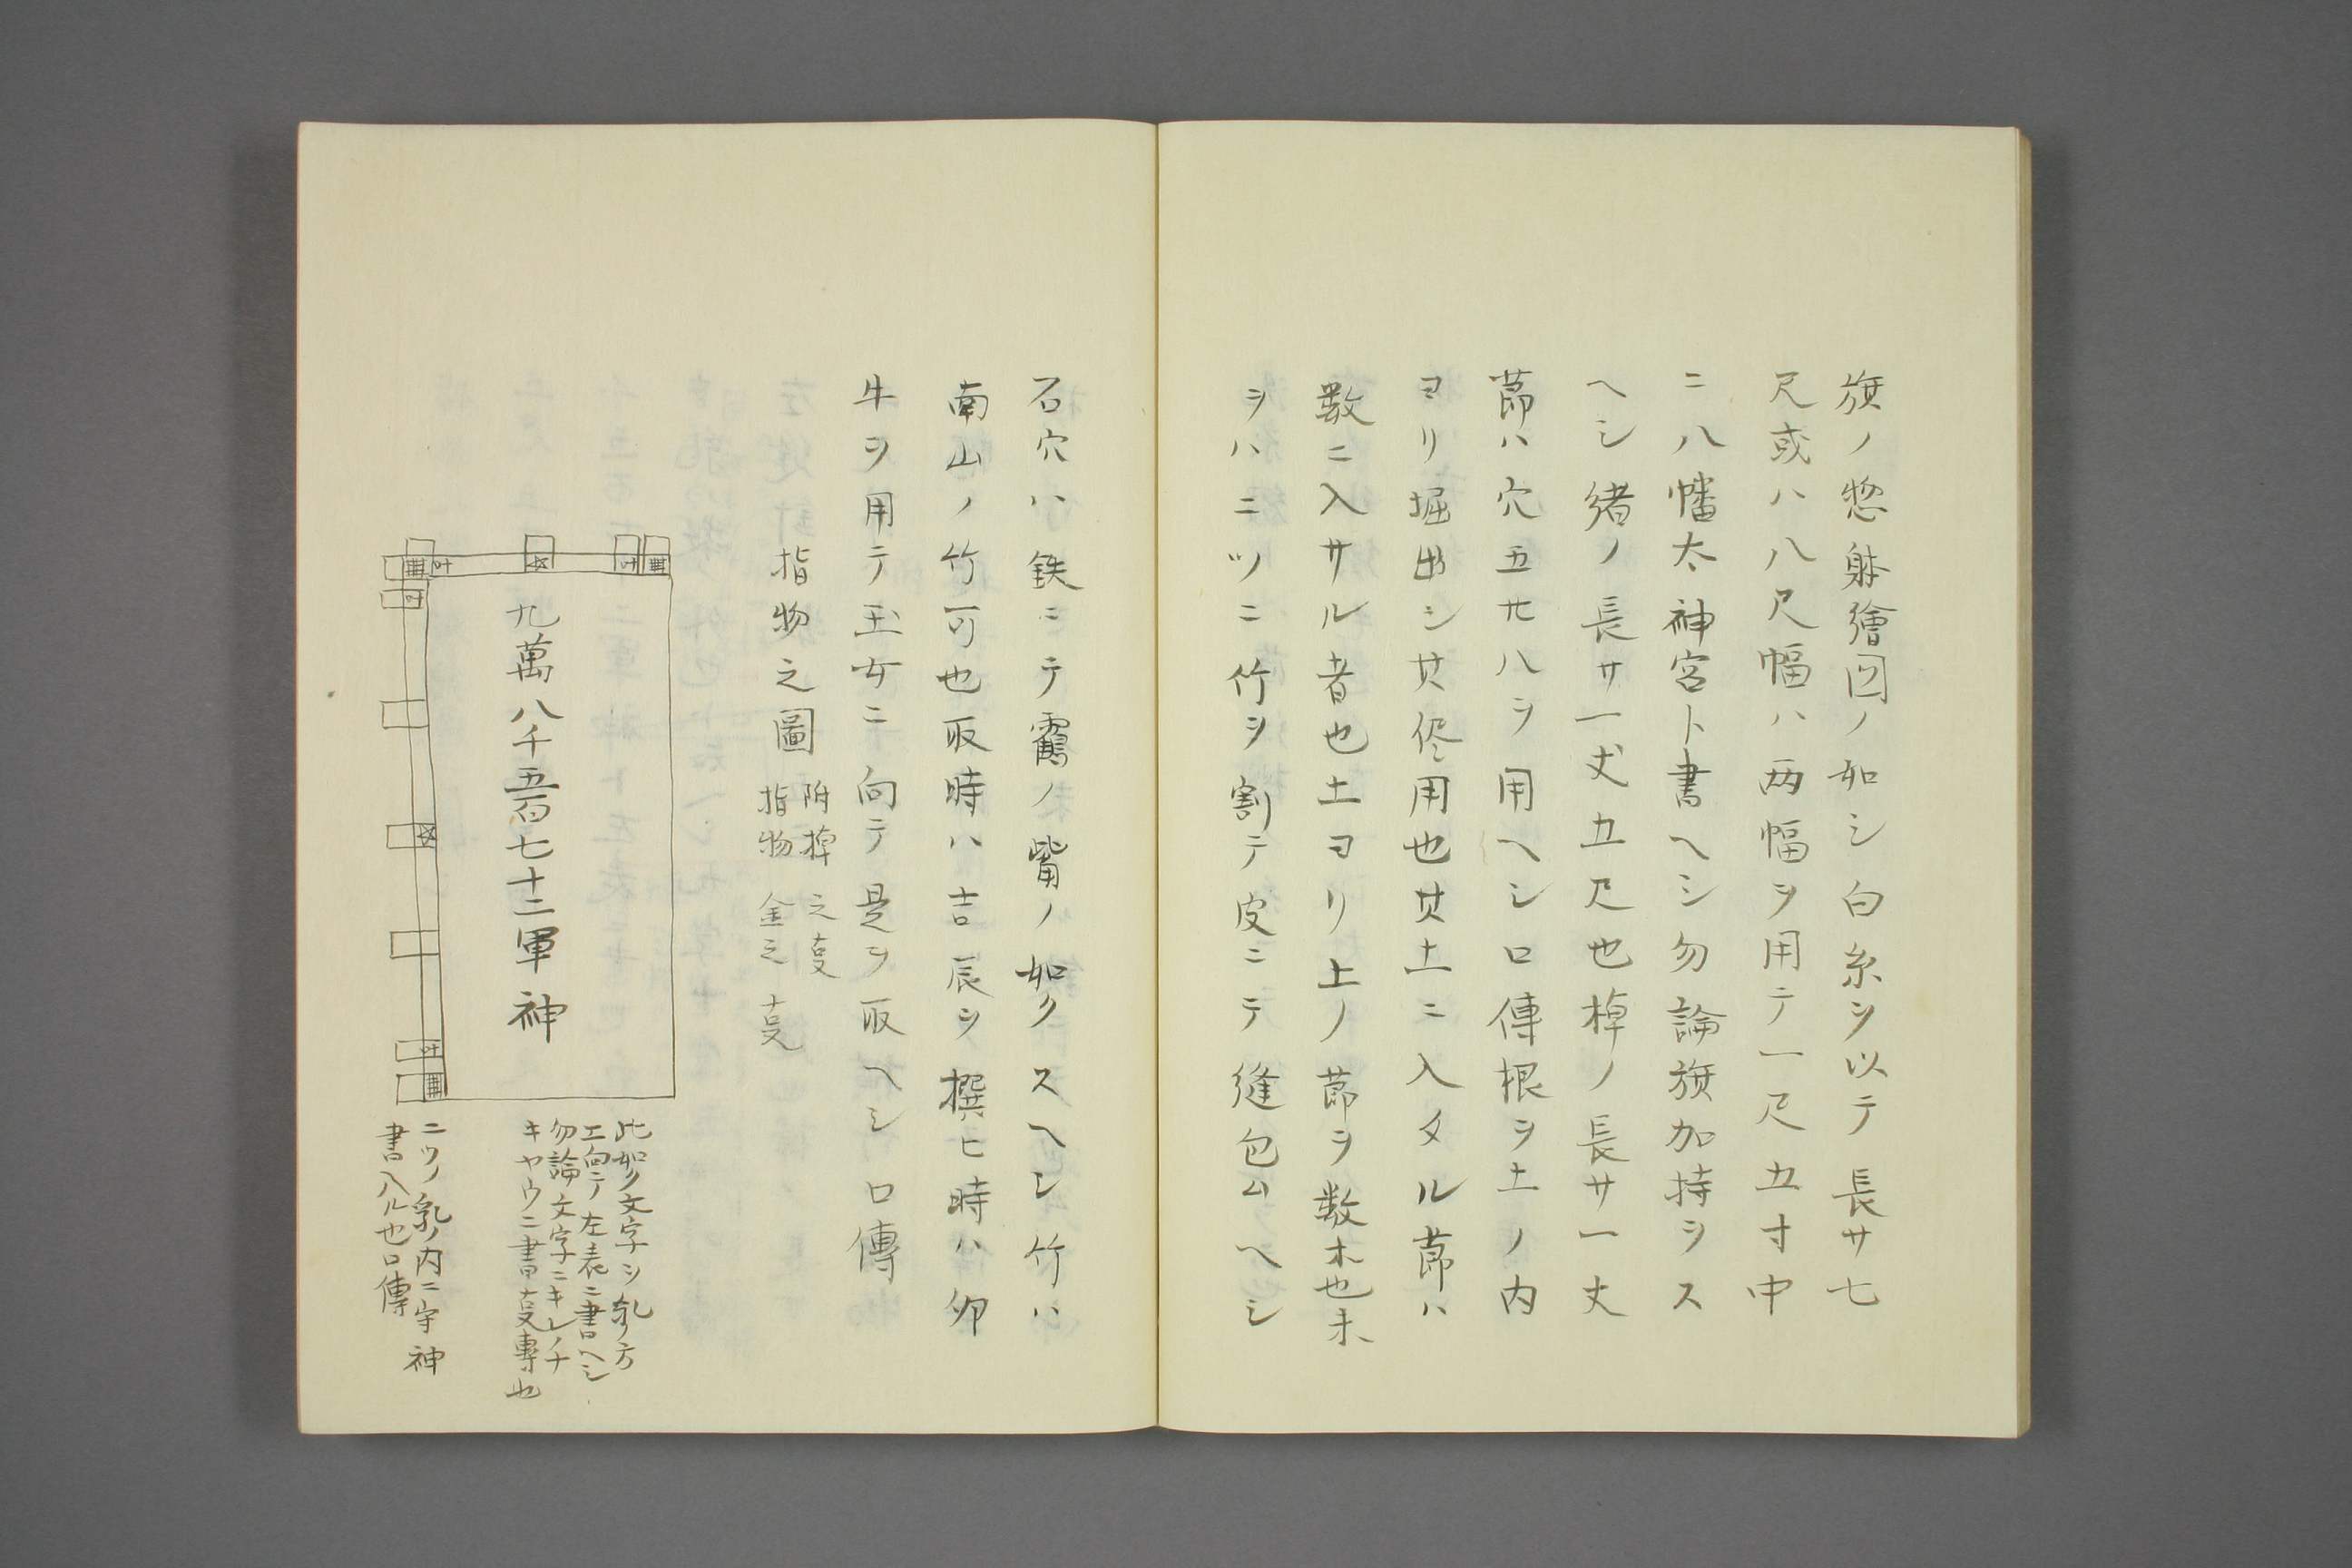 旗ノ惣躰繪図ノ如シ白糸ヲ以テ長サ七
尺或ハ八尺幅ハ两幅ヲ用テ一尺五寸中
ニ八幡太神宮ト書ヘシ勿論旗加持ヲス
ヘシ緒ノ長サ一丈五尺也棹ノ長サ一丈
節ハ穴五廿八ヲ用ヘシ口傳根ヲ土ノ内
ヨリ掘出シ其侭用也其土ニ入タル節ハ
数ニ入サル者也土ヨリ上ノ節ヲ数木也末
ヲハニツニ竹ヲ割テ皮ニテ縫包ムヘシ
石穴ハ鉄ニテ靏ノ觜ノ如クスヘシ竹ハ
南山ノ竹可也取時ハ吉辰ヲ撰ヒ時ハ卯
牛ヲ用テ玉女ニ向テ是ヲ取ヘシ口傳
指物之圖
附棹之叓
指物金之叓
九萬八千五百七十二軍神
此如ク文字ヲ乳ノ方
エ向テ左表ニ書ヘシ
勿論文字ニキレノナ
キヤウニ書叓專也
ニツノ乳ノ内ニ字神
書入ル也口傳